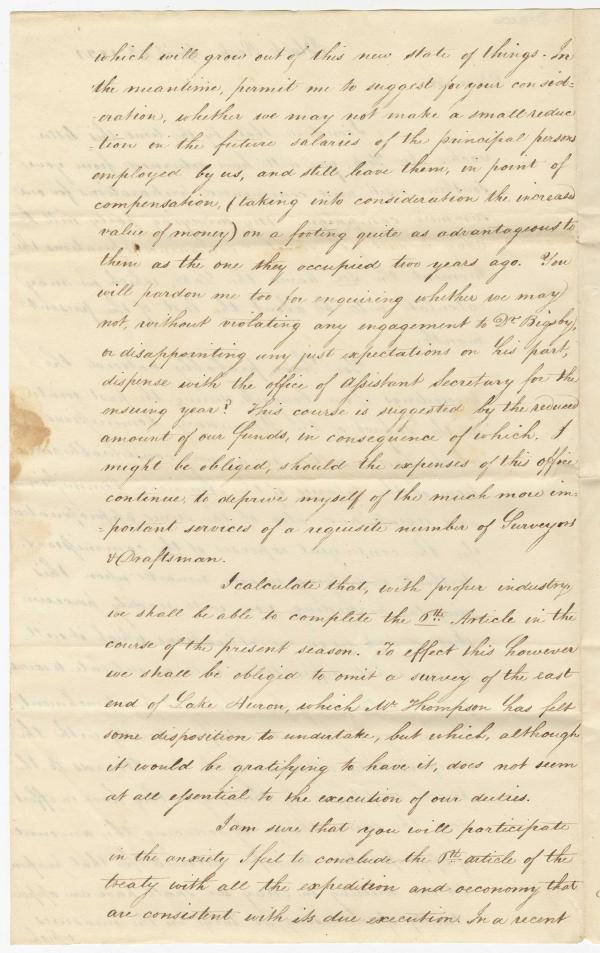 which will grow out of this new state of things - In
the meantime, permit me to suggest for your consid-
-eration, whether we may not make a small reduc
-tion in the future salaries of the principal persons
employed by us, and still leave them, in point of
compensation, (taking into consideration the increased
value of money) on a footing quite as advantageous to
them as the one they occupied two years ago. You
will pardon me too for enquiring whether we may
not, without violating any engagement to Dr Bigsby,
or disappointing any just expectations on his part,
dispense with the office of Assistant Secretary for the
ensuing year? This course is suggested by the reduced
amount of our funds, in consequence of which, I
might be obliged, should the expenses of this office
continue, to deprive myself of the much more im-
-portant services of a requisite number of Surveyors
& Draftsman.
I calculate that, with proper industry,
we shall be able to complete the 6th. Article in the
course of the present season. To effect this however
we shall be obliged to omit a survey of the east
end of Lake Huron, which Mr Thompson has felt
some disposition to undertake, but which, although
it would be gratifying to have it, does not seem
at all essential to the execution of our duties.
I am sure that you will participate
in the anxiety I feel to conclude the 6th. article of the
treaty with all the expedition and oeconomy that
are consistent with its due execution. In a recent